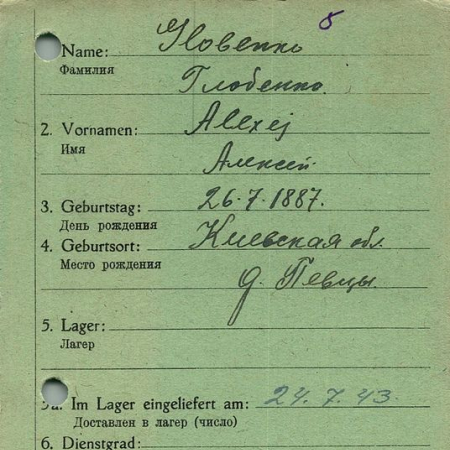 5
Name: Glovenko
Фамилия
Глобенко.
2. Vornamen: Alexej
Имя
Алексей
3. Geburtstag: 26.7.1887.
День рождения
4. Geburtsort: Киевская обл.
Место рождения
д. Певцы.
5. Lager:
Лагер
5a. Im Lager eingeliefert am: 24.7.43.
Доставлен в лагер (число)
6. Dienstgrad: